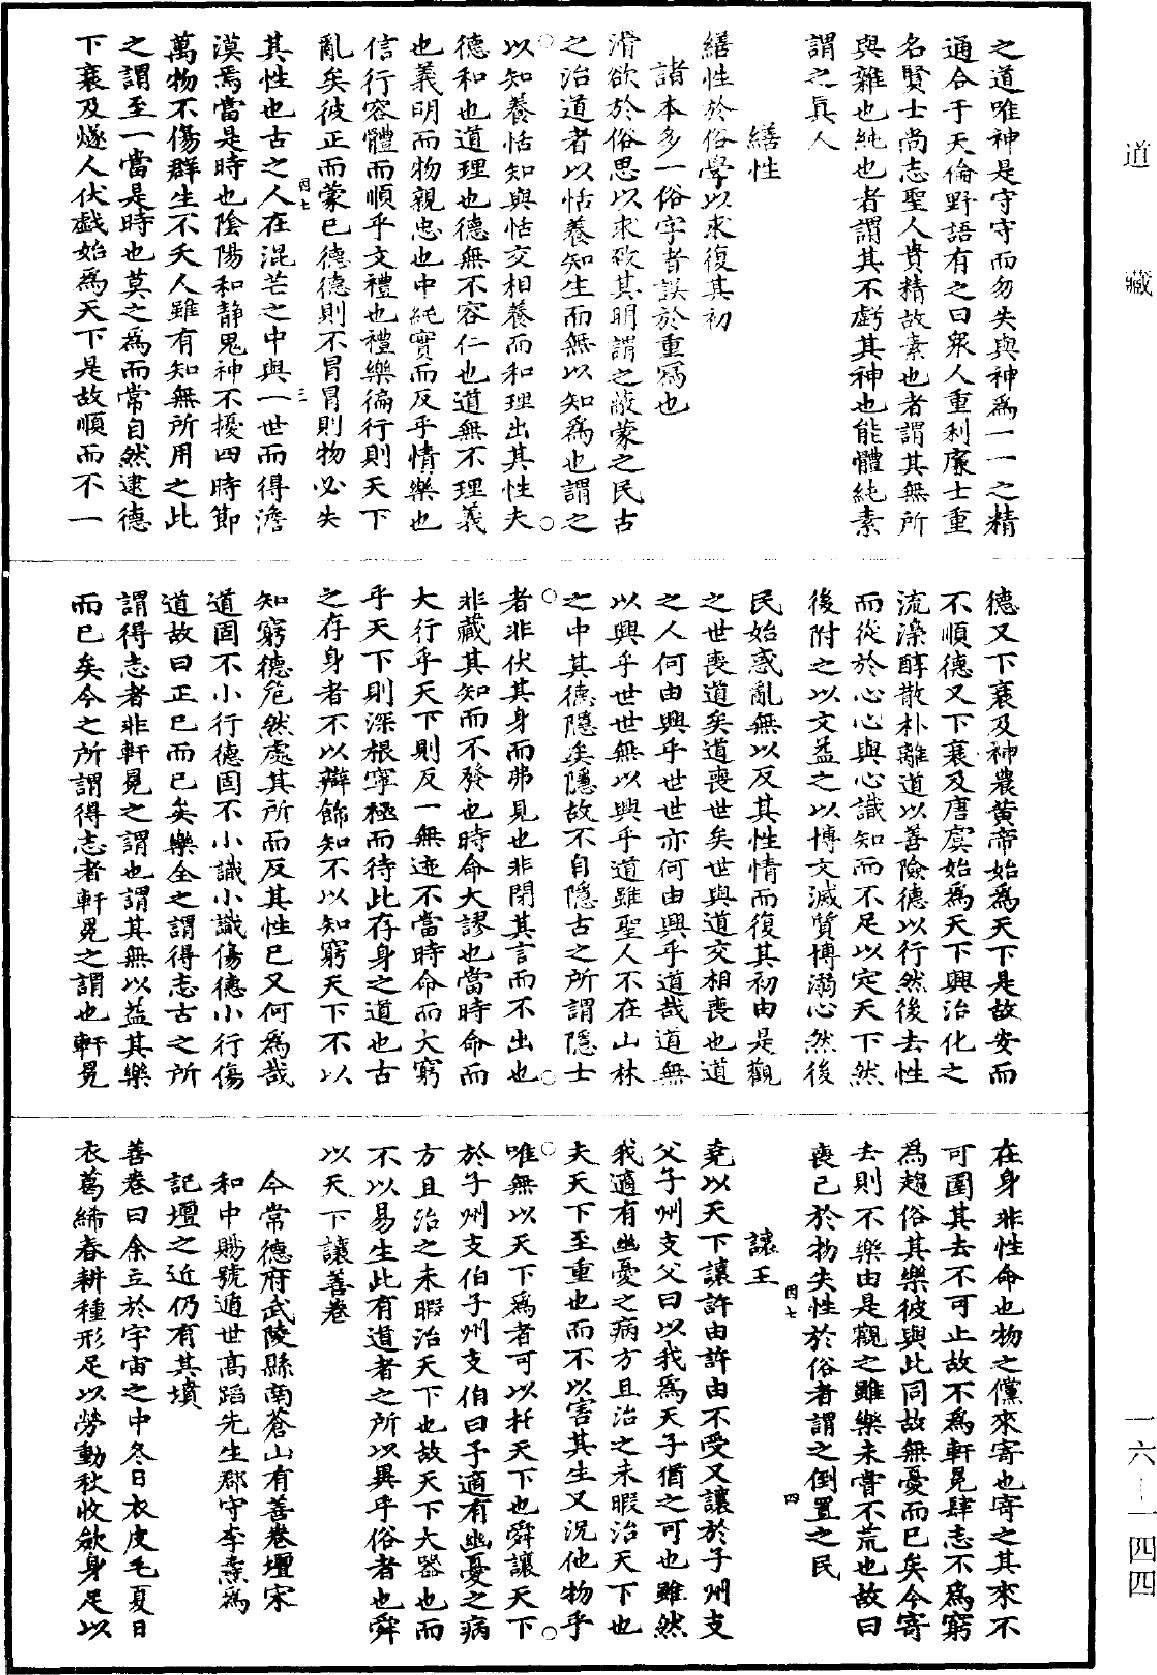 道藏
之道唯神是守守而勿失與神為一一之精
通合于天倫野語有之曰衆人重利廉士重
名賢士尚志聖人貴精故素也者謂其無所
與雜也純也者謂其不虧其神也能體純素
謂之眞人
繕性
繕性於俗學以求復其初
諸本多一俗字者誤於重寫也
滑欲於俗思以求致其明謂之蔽蒙之民古
之治道者以恬養知生而無以知為也謂之
以知養恬知與恬交相養而和理出其性夫
德和也道理也德無不容仁也道無不理義
也義明而物親忠也中純實而反乎情樂也
信行容體而順乎文禮也禮樂徧行則天下
亂矣彼正而蒙已德德則不冒冒則物必失
因七 三
其性也古之人在混芒之中與一世而得澹
漠焉當是時也陰陽和静鬼神不擾四時節
萬物不傷群生不夭人雖有知無所用之此
之謂至一當是時也莫之為而常自然逮德
下衰及燧人伏戲始為天下是故順而不一
德又下衰及神農黄帝始為天下是故安而
不順德又下衰及唐虞始為天下興治化之
流澡醇散朴離道以善險德以行然後去性
而從於心心與心識知而不足以定天下然
後附之以文益之以博文滅質博溺心然後
民始惑亂無以反其性情而復其初由是觀
之世喪道矣道喪世矣世與道交相喪也道
之人何由興乎世世亦何由興乎道哉道無
以興乎世世無以興乎道雖聖人不在山林
之中其德隱矣隱故不自隱古之所謂隱士
者非伏其身而弗見也非閉其言而不出也
非藏其知而不發也時命大謬也當時命而
大行乎天下則反一無迹不當時命而大窮
乎天下則深根寧極而待此存身之道也古
之存身者不以辯飾知不以知窮天下不以
知窮德危然處其所而反其性已又何為哉
道固不小行德固不小識小識傷德小行傷
道故曰正已而已矣樂全之謂得志古之所
謂得志者非軒冕之謂也謂其無以益其樂
而已矣今之所謂得志者軒冕之謂也軒冕
在身非性命也物之儻來寄也寄之其來不
可圉其去不可止故不為軒冕肆志不為窮
為趨俗其樂彼與此同故無憂而已矣今寄
去則不樂由是觀之雖樂未嘗不荒也故曰
喪己於物失性於俗者謂之倒置之民
因七 四
讓王
堯以天下讓許由許由不受又讓於子州支
父子州支父曰以我為天子猶之可也雖然
我適有幽憂之病方且治之未暇治天下也
夫天下至重也而不以害其生又況他物乎
唯無以天下為者可以托天下也舜讓天下
於子州支伯子州支伯曰予適有幽憂之病
方且治之未暇治天下也故天下大器也而
不以易生此有道者之所以異乎俗者也舜
以天下讓善卷
今常德府武陵縣南蒼山有善卷壇宋
和中賜號遁世高蹈先生郡守李燾為
記壇之近仍有其墳
善卷曰余立於宇宙之中冬日衣皮毛夏日
衣葛絺春耕種形足以勞動秋收歛身足以
一六-一四四